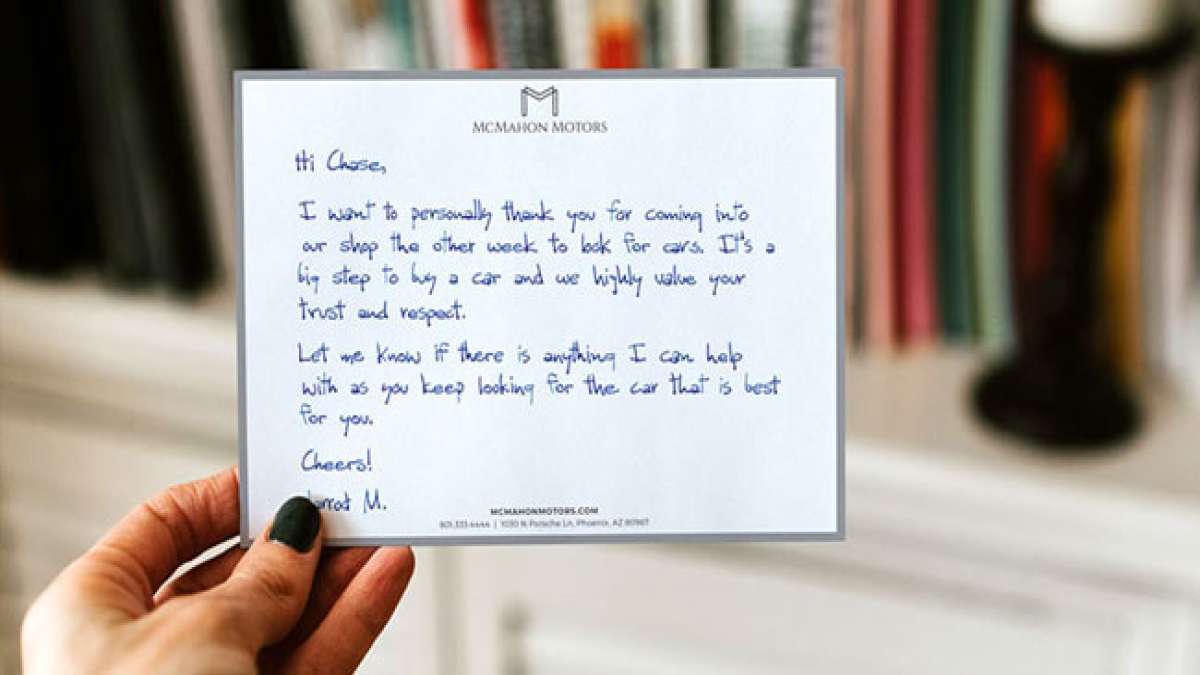 McMahon Motors
Hi Chase,
I want to personally thank you for coming into
our shop the other week to look for cars. It's a
big step to buy a car and we highly value your
trust and respect.
Let me know if there is anything I can help
with as you keep looking for the car that is best
for you.
Cheers!
M.
MCMAHONMOTORS.COM
801.333.4444 | 1030 N Porsche Ln, Phoenix, AZ